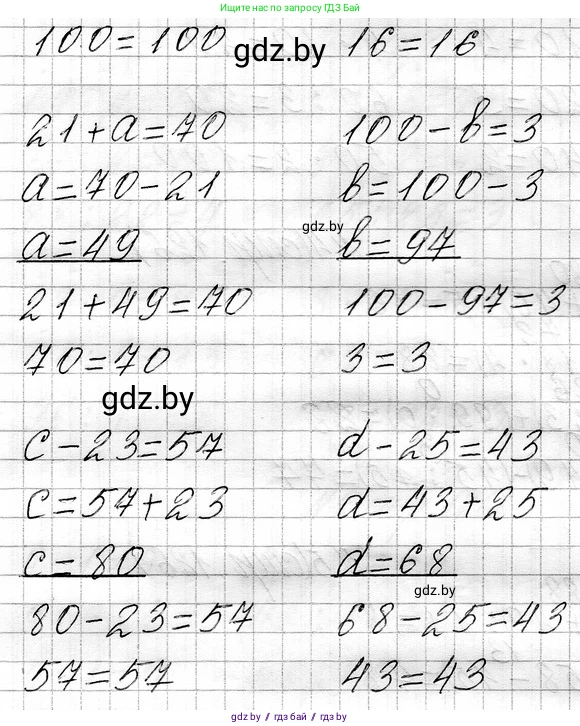 Ищите нас в поисковиках по ГДЗ Бай
100=100 gdz.by 16=16
21+a=70 100-b=3
a=70-21 b=100-3
gdz.by
a=49 b=97
21+49=70 100-97=3
70=70 3=3
gdz.by
c-23=57 d-25=43
c=57+23 d=43+25
c=80 d=68
gdz.by
80-23=57 68-25=43
57=57 43=43
gdz by // гдз бай // gdz.by